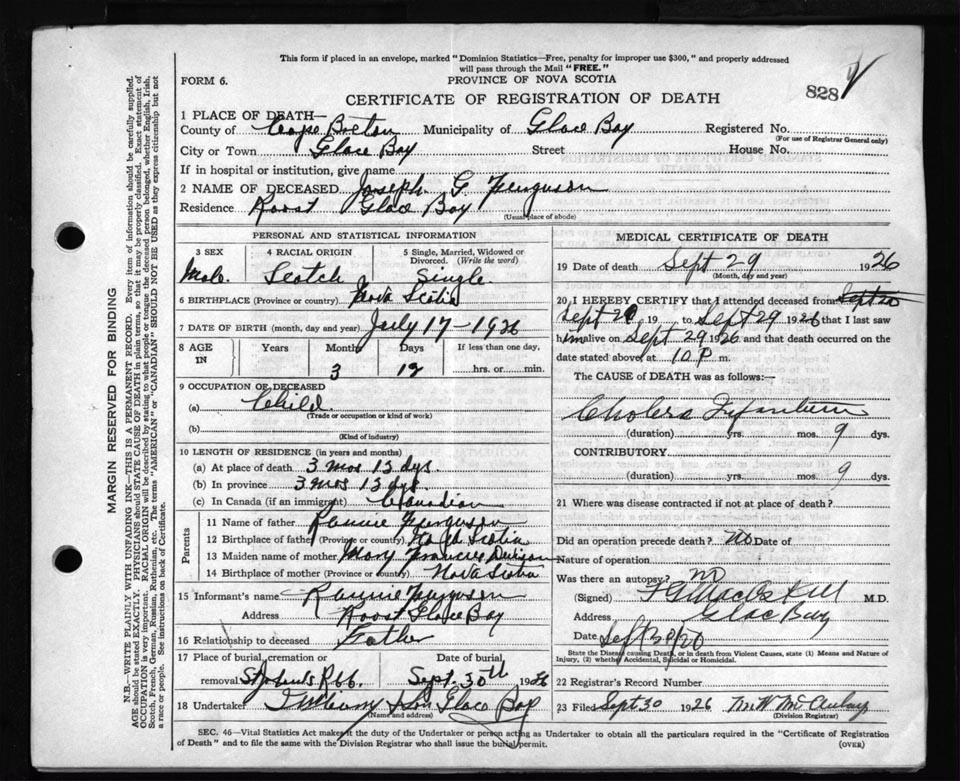 This form if placed in an envelope, marked "Dominion Statistics—Free, penalty for improper use $300," and properly addressed
will pass through the Mail "FREE."
FORM 6. PROVINCE OF NOVA SCOTIA
CERTIFICATE OF REGISTRATION OF DEATH
828
1 PLACE OF DEATH—
County of Cape Breton Municipality of Glace Bay Registered No.
(For use of Registrar General only)
City or Town Glace Bay Street House No.
If in hospital or institution, give name
2 NAME OF DECEASED Joseph G Ferguson
Residence Roost Glace Bay
(Usual place of abode)
PERSONAL AND STATISTICAL INFORMATION
3 SEX 4 RACIAL ORIGIN 5 Single, Married, Widowed or
Divorced. (Write the word)
Male Scotch Single
6 BIRTHPLACE (Province or country) Nova Scotia
7 DATE OF BIRTH (month, day and year) July 17-1926
8 AGE IN Years Months Days If less than one day,
3 12 hrs. or min.
9 OCCUPATION OF DECEASED
(a) Child
(Trade or occupation or kind of work)
(b)
(Kind of industry)
10 LENGTH OF RESIDENCE (in years and months)
(a) At place of death 3 mos 12 dys.
(b) In province 3 mos 12 dys.
(c) In Canada (if an immigrant) Canadian
Parents
11 Name of father Rannie Ferguson
12 Birthplace of father (Province or country) Nova Scotia
13 Maiden name of mother Mary Francis
14 Birthplace of mother (Province or country) Nova Scotia
15 Informant's name Rannie Ferguson
Address Roost Glace Bay
16 Relationship to deceased Father
17 Place of burial, cremation or Date of burial
removal Sept. 30th 1926
18 Undertaker Son Glace Bay
(Name and address)
MEDICAL CERTIFICATE OF DEATH
19 Date of death Sept 29 1926
(Month, day and year)
20 I HEREBY CERTIFY that I attended deceased from
Sept 19 to Sept 29 1926 that I last saw
him alive on Sept 29 1926 and that death occurred on the
date stated above, at 10 P m.
The CAUSE OF DEATH was as follows:—
Cholera Infantum
(duration) yrs. mos. 9 dys.
CONTRIBUTORY
(duration) yrs. mos. 9 dys.
21 Where was disease contracted if not at place of death?
Did an operation precede death? No Date of
Nature of operation
Was there an autopsy? no
(Signed) M.D.
Address Glace Bay
Date Sept 30/20
State the Disease causing Death, or in death from Violent Causes, state (1) Means and Nature of
Injury, (2) whether Accidental, Suicidal or Homicidal.
22 Registrar's Record Number
23 Files Sept 30 1926
(Division Registrar)
SEC. 46—Vital Statistics Act makes it the duty of the Undertaker or person acting as Undertaker to obtain all the particulars required in the "Certificate of Registration
of Death" and to file the same with the Division Registrar who shall issue the burial permit.
(OVER)
MARGIN RESERVED FOR BINDING
N.B.—WRITE PLAINLY WITH UNFADING INK—THIS IS A PERMANENT RECORD. Every item of information should be carefully supplied.
AGE should be stated EXACTLY. PHYSICIANS should STATE CAUSE OF DEATH in plain terms, so that it may be properly classified. Exact statement of
OCCUPATION is very important. RACIAL ORIGIN will be described by stating to what people or tongue the deceased person belonged, whether English, Irish,
Scotch, French, German, Russian, Ruthenian, etc. The terms "AMERICAN" or "CANADIAN" SHOULD NOT BE USED as they express citizenship but not
a race or people. See instructions on back of Certificate.